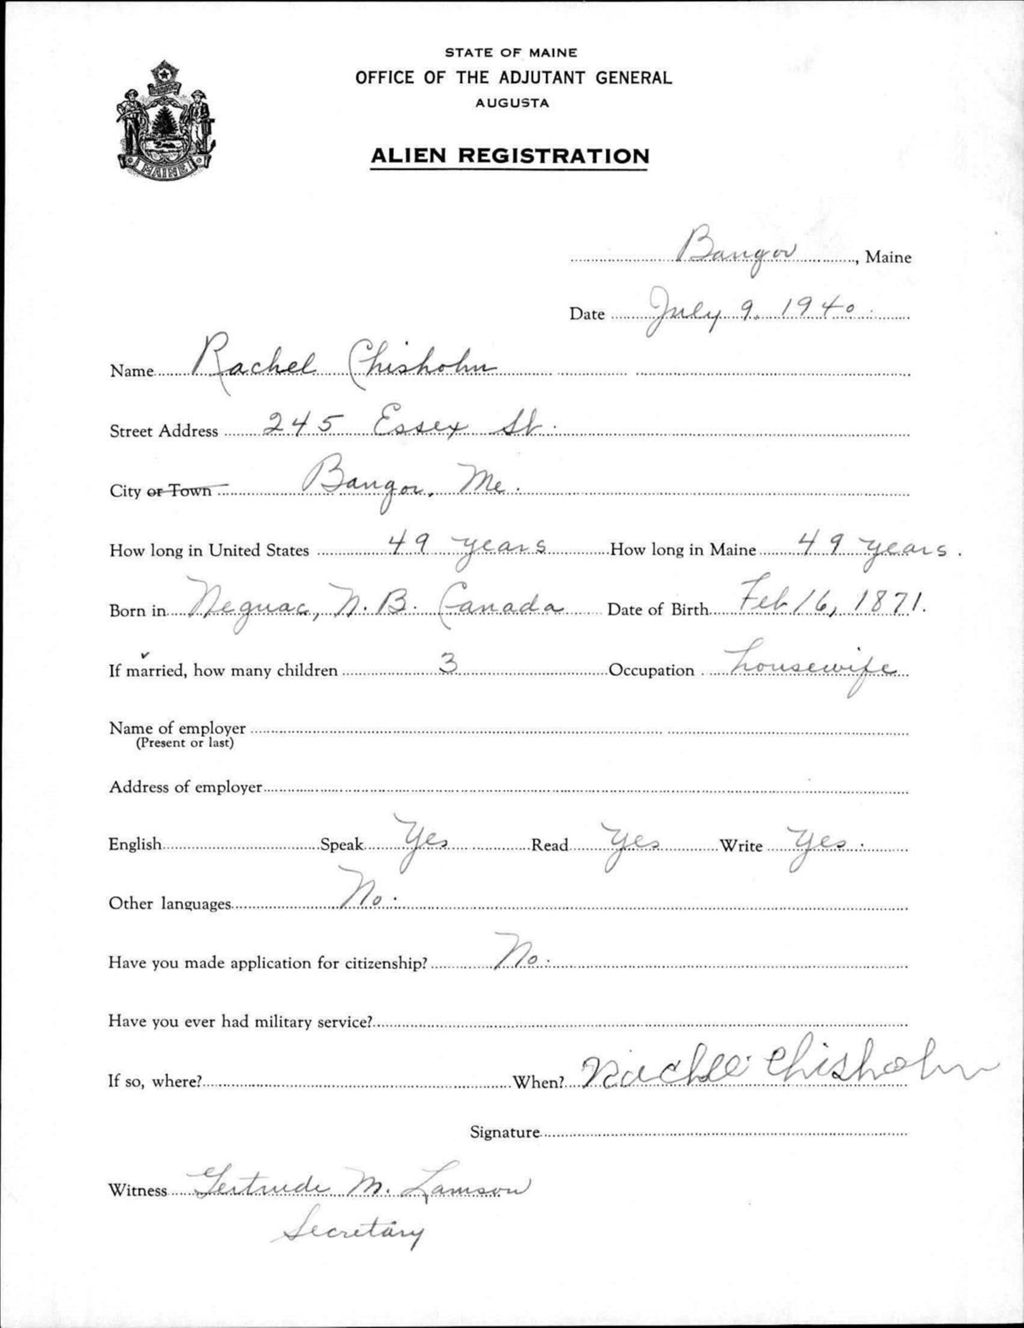 STATE OF MAINE
OFFICE OF THE ADJUTANT GENERAL
AUGUSTA
ALIEN REGISTRATION
MAINE
Bangor, Maine
Date July 9. 1940.
Name Rachel Chisholm
Street Address 245 Essex St.
City or Town Bangor, Me.
How long in United States 49 years How long in Maine 49 years.
Born in Neguac, N.B. Canada Date of Birth Feb 16, 1871.
If married, how many children 3 Occupation housewife
Name of employer
(Present or last)
Address of employer
English Speak Yes Read Yes Write Yes.
Other languages No.
Have you made application for citizenship? No.
Have you ever had military service?
If so, where? When? Rachel Chisholm
Signature
Witness Gertrude M. Lamson
Secretary